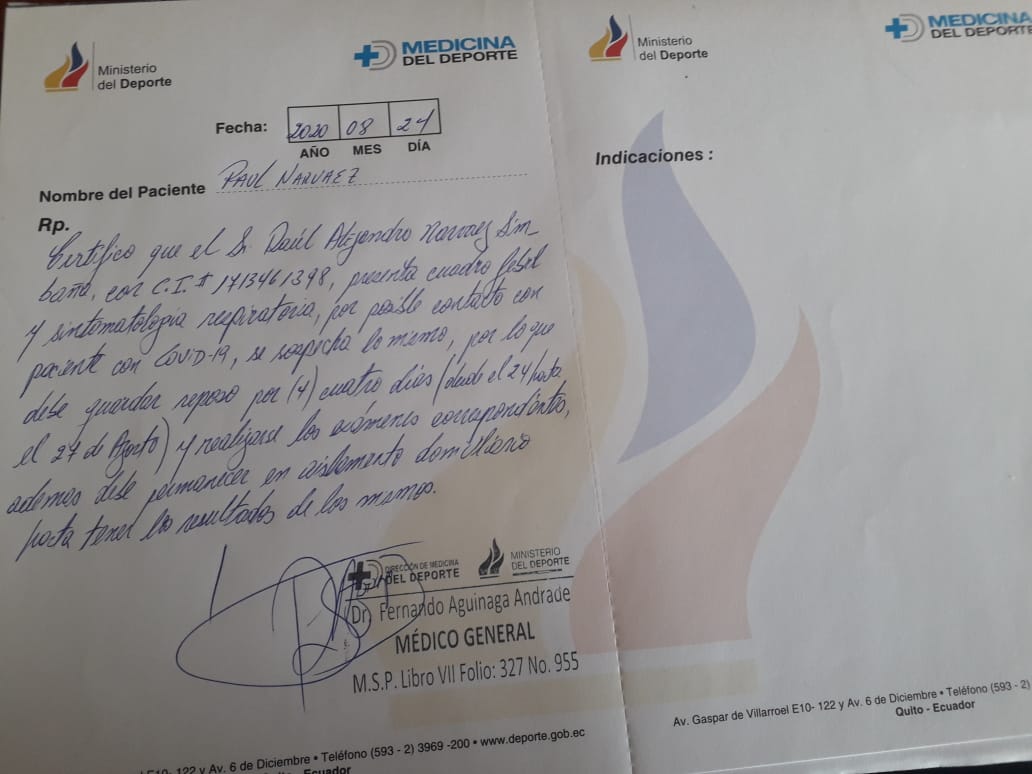 Ministerio
del Deporte
MEDICINA
DEL DEPORTE
Fecha: 2020 08 24
AÑO MES DÍA
Nombre del Paciente PAUL NARVAEZ
Rp.
Certifico que el Sr. Paúl Alejandro Narvaez Sim-
baña, con C.I. # 1713461398, presenta cuadro febril
y sintomatologia respiratoria, por posible contacto con
paciente con COVID-19, se sospecha lo mismo, por lo que
debe guardar reposo por (4) cuatro dias (desde el 24 hasta
el 27 de Agosto) y realizarse los exámenes correspondientes,
ademas debe permanecer en aislamiento domiciliario
hasta tener los resultados de los mismos.
DIRECCIÓN DE MEDICINA
DEL DEPORTE
MINISTERIO
DEL DEPORTE
Dr. Fernando Aguinaga Andrade
MÉDICO GENERAL
M.S.P. Libro VII Folio: 327 No. 955
E10- 122 y Av. 6 de Diciembre • Teléfono (593 - 2) 3969 -200 • www.deporte.gob.ec
Quito - Ecuador
Ministerio
del Deporte
MEDICINA
DEL DEPORTE
Indicaciones :
Av. Gaspar de Villarroel E10- 122 y Av. 6 de Diciembre • Teléfono (593 - 2)
Quito - Ecuador